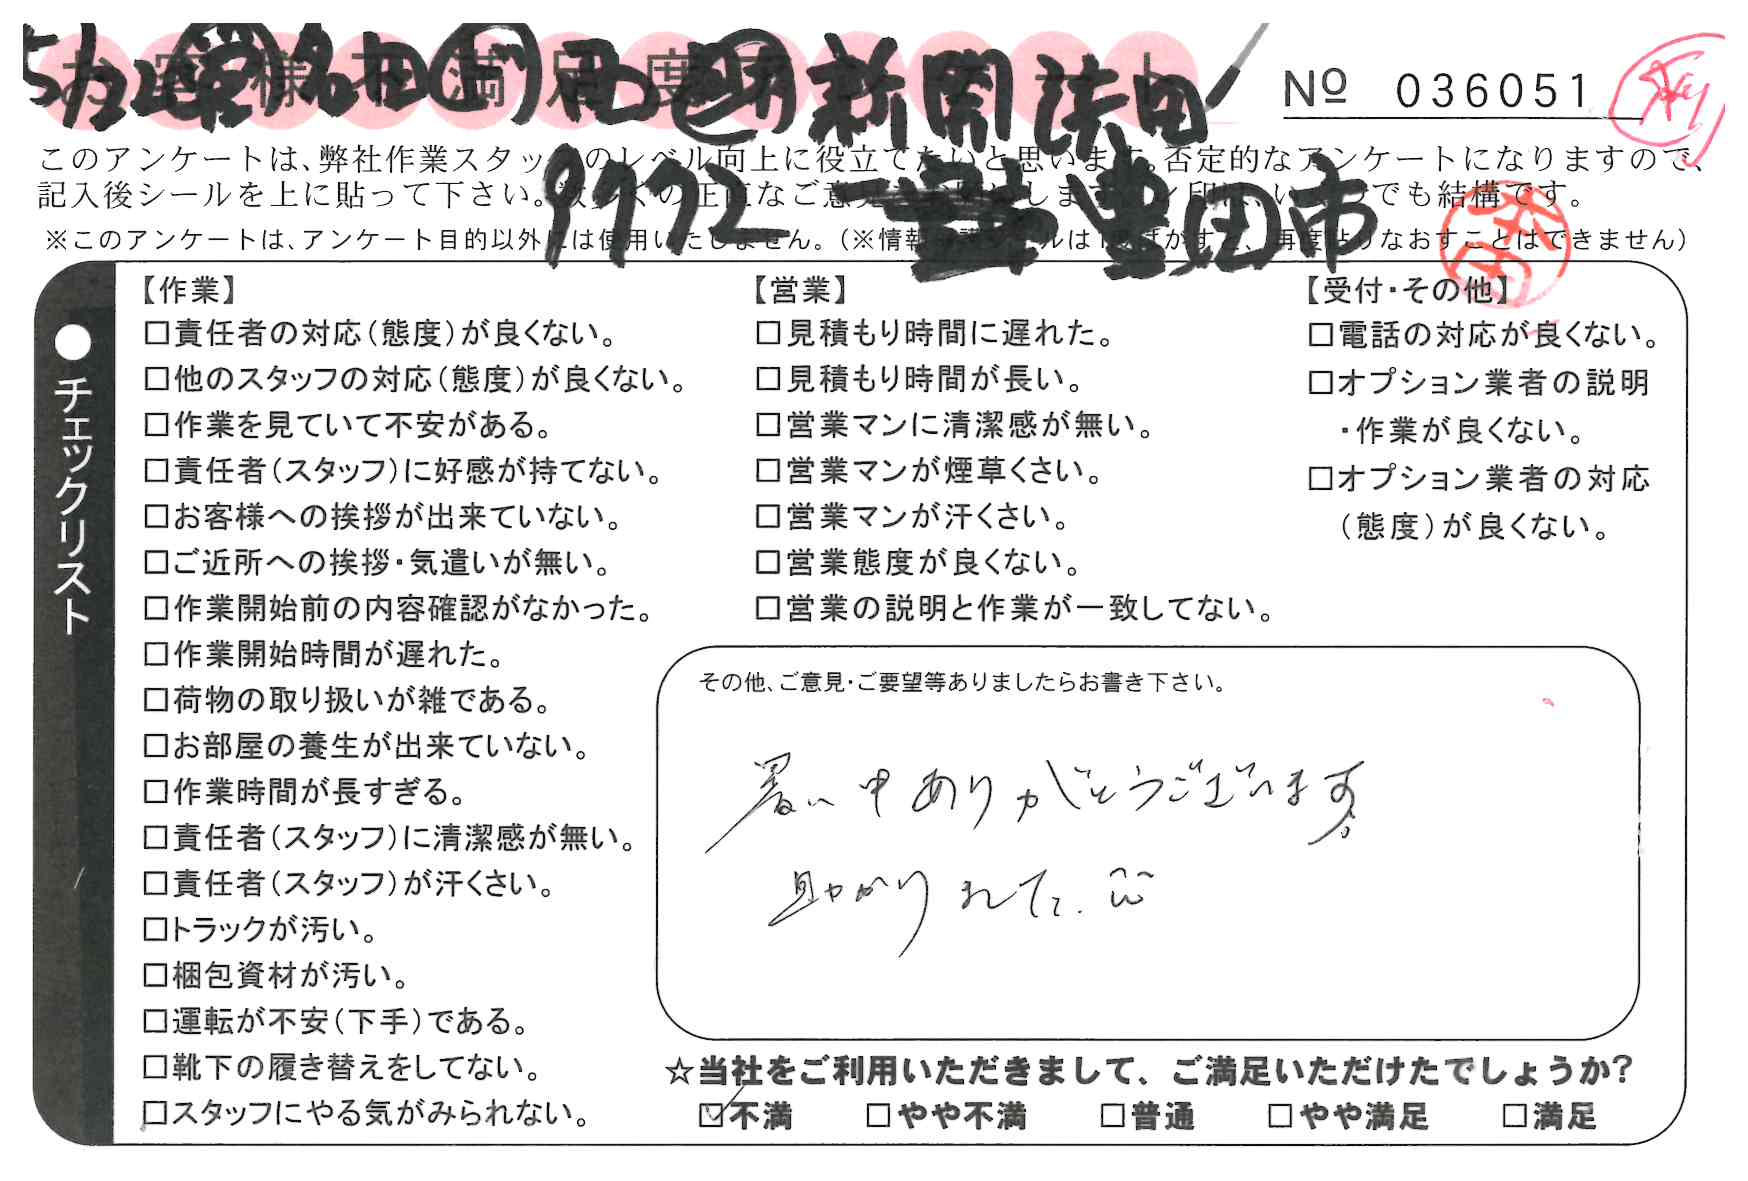 お客様不満足度アンケート
5/22 新開 津田
№ 036051
このアンケートは、弊社作業スタッフのレベル向上に役立てたいと思います。否定的なアンケートになりますので、
記入後シールを上に貼って下さい。数多くの正直なご意見お願いします。レ印は、いくつでも結構です。
9972 豊田市
※このアンケートは、アンケート目的以外には使用いたしません。(※情報保護シールは1度はがすと、再度貼りなおすことはできません)
●チェックリスト
【作業】
□責任者の対応(態度)が良くない。
□他のスタッフの対応(態度)が良くない。
□作業を見ていて不安がある。
□責任者(スタッフ)に好感が持てない。
□お客様への挨拶が出来ていない。
□ご近所への挨拶・気遣いが無い。
□作業開始前の内容確認がなかった。
□作業開始時間が遅れた。
□荷物の取り扱いが雑である。
□お部屋の養生が出来ていない。
□作業時間が長すぎる。
□責任者(スタッフ)に清潔感が無い。
□責任者(スタッフ)が汗くさい。
□トラックが汚い。
□梱包資材が汚い。
□運転が不安(下手)である。
□靴下の履き替えをしてない。
□スタッフにやる気がみられない。
【営業】
□見積もり時間に遅れた。
□見積もり時間が長い。
□営業マンに清潔感が無い。
□営業マンが煙草くさい。
□営業マンが汗くさい。
□営業態度が良くない。
□営業の説明と作業が一致してない。
【受付・その他】
□電話の対応が良くない。
□オプション業者の説明
・作業が良くない。
□オプション業者の対応
(態度)が良くない。
その他、ご意見・ご要望等ありましたらお書き下さい。
暑い中ありがとうございます。
助かりました. ^^
☆当社をご利用いただきまして、ご満足いただけたでしょうか?
☑不満 □やや不満 □普通 □やや満足 □満足